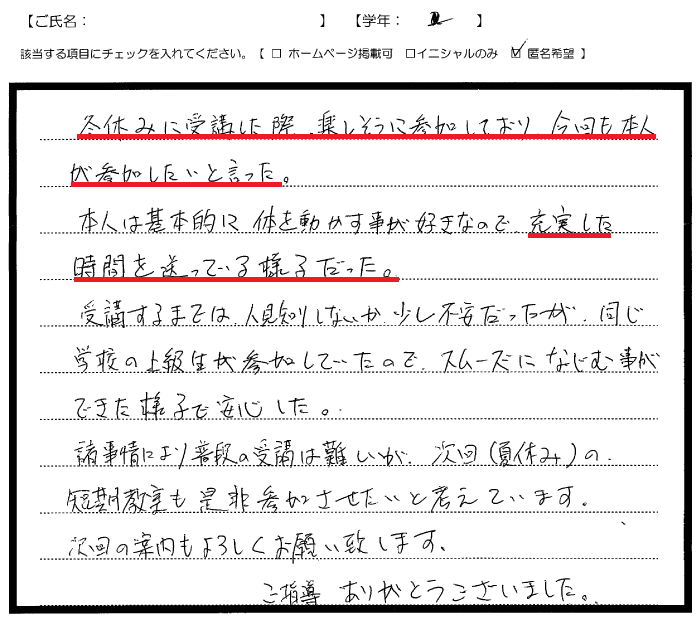 【ご氏名： 】 【学年： 2 】
該当する項目にチェックを入れてください。【 □ ホームページ掲載可 □イニシャルのみ ☑ 匿名希望 】
冬休みに受講した際、楽しそうに参加しており、今回も本人
が参加したいと言った。
本人は基本的に体を動かす事が好きなので、充実した
時間を送っている様子だった。
受講するまでは、人見知りしないか、少し不安だったが、同じ
学校の上級生が参加していたので、スムーズになじむ事が
できた様子で安心した。
諸事情により普段の受講は難しいが、次回(夏休み)の
短期教室も是非参加させたいと考えています。
次回の案内もよろしくお願い致します。
ご指導ありがとうございました。